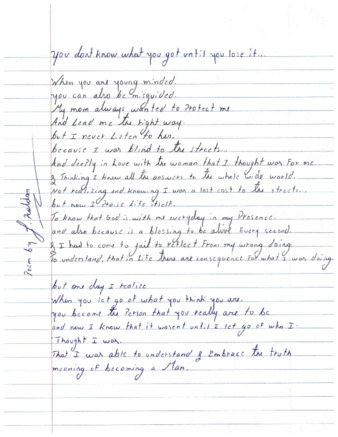 you dont know what you got until you lose it...
When you are young minded.
you can also be misguided.
My mom always wanted to Protect me
And Lead me the Right way.
but I never Listen to her.
because I was blind to the streets..
And deeply in Love with the woman that I thought was For me
& Thinking I knew all the answers to the whole wide world.
Not realizing and knowing I was a lost cost to the streets...
but now I Praise Life itself.
To know that God is with me everyday in my Presence.
and also because is a blessing to be alive Every second.
& I had to come to jail to reflect From my wrong doing.
to understand, that in Life there are consequences For what I was doing.
but one day I realize
When you let go of what you think you are.
you become the Person that you really are to be
and now I know that it wasent until I let go of who I.
Thought I was.
That I was able to understand & Embrace the truth
meaning of becoming a Man.
Poem by J.